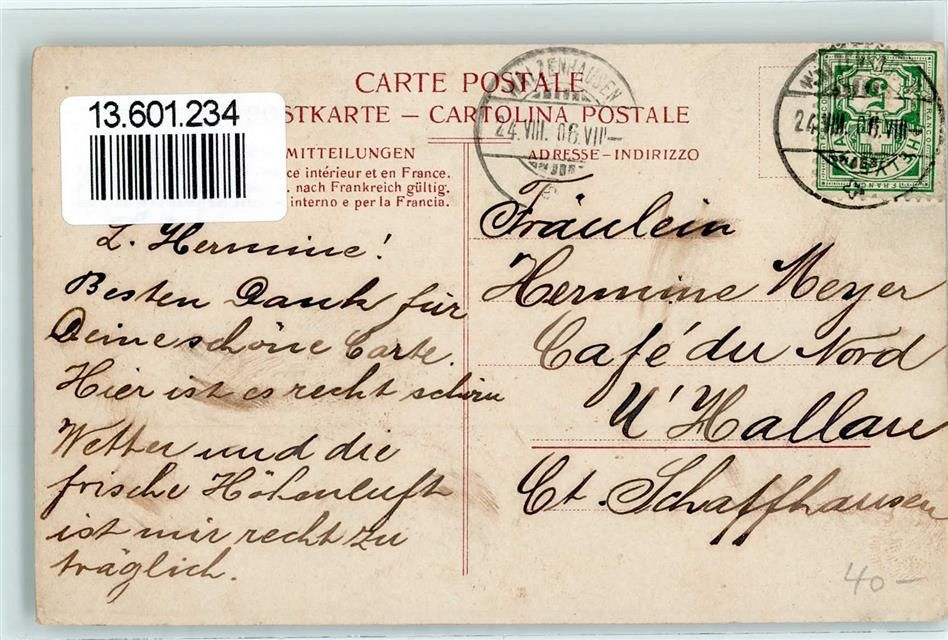 CARTE POSTALE
POSTKARTE – CARTOLINA POSTALE
13.601.234
MITTEILUNGEN
ce intérieur et en France.
nach Frankreich gültig.
interno e per la Francia.
ADRESSE-INDIRIZZO
WALZENHAUSEN
24.VIII.06.VIII–
24.VIII.06.VIII–
L. Hermine!
Besten Dank für
Deine schöne Carte.
Hier ist es recht schön
Wetter und die
frische Höhenluft
ist mir recht zu
träglich.
Fräulein
Hermine Meyer
Café du Nord
U' Hallau
Ct. Schaffhausen
40–